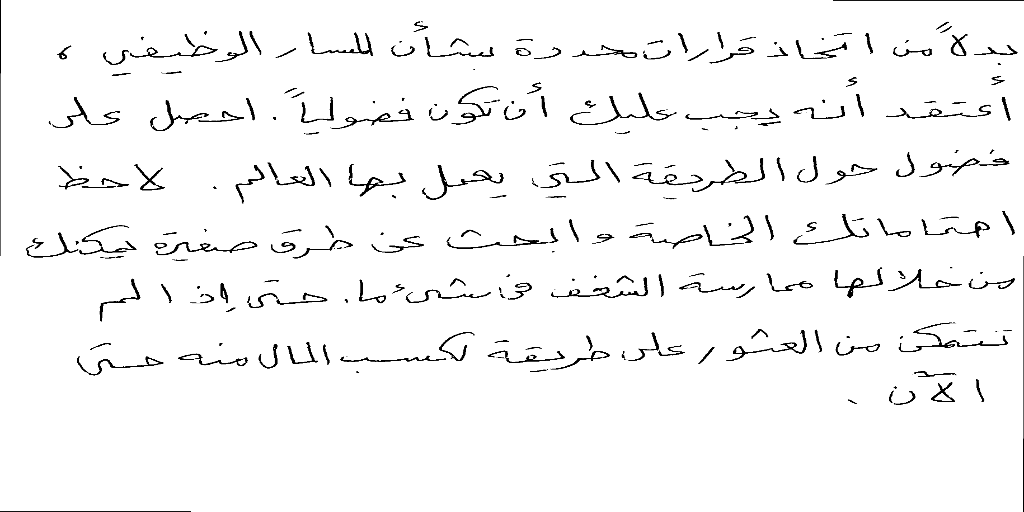 بدلاً من اتخاذ قرارات محددة بشأن المسار الوظيفي ،
أعتقد أنه يجب عليك أن تكون فضولياً . احصل على
فضول حول الطريقة التي يعمل بها العالم . لاحظ
اهتماماتك الخاصة وابحث عن طرق صغيرة يمكنك
من خلالها ممارسة الشغف في شيء ما . حتى إذا لم
تتمكن من العثور على طريقة لكسب المال منه حتى
الآن .